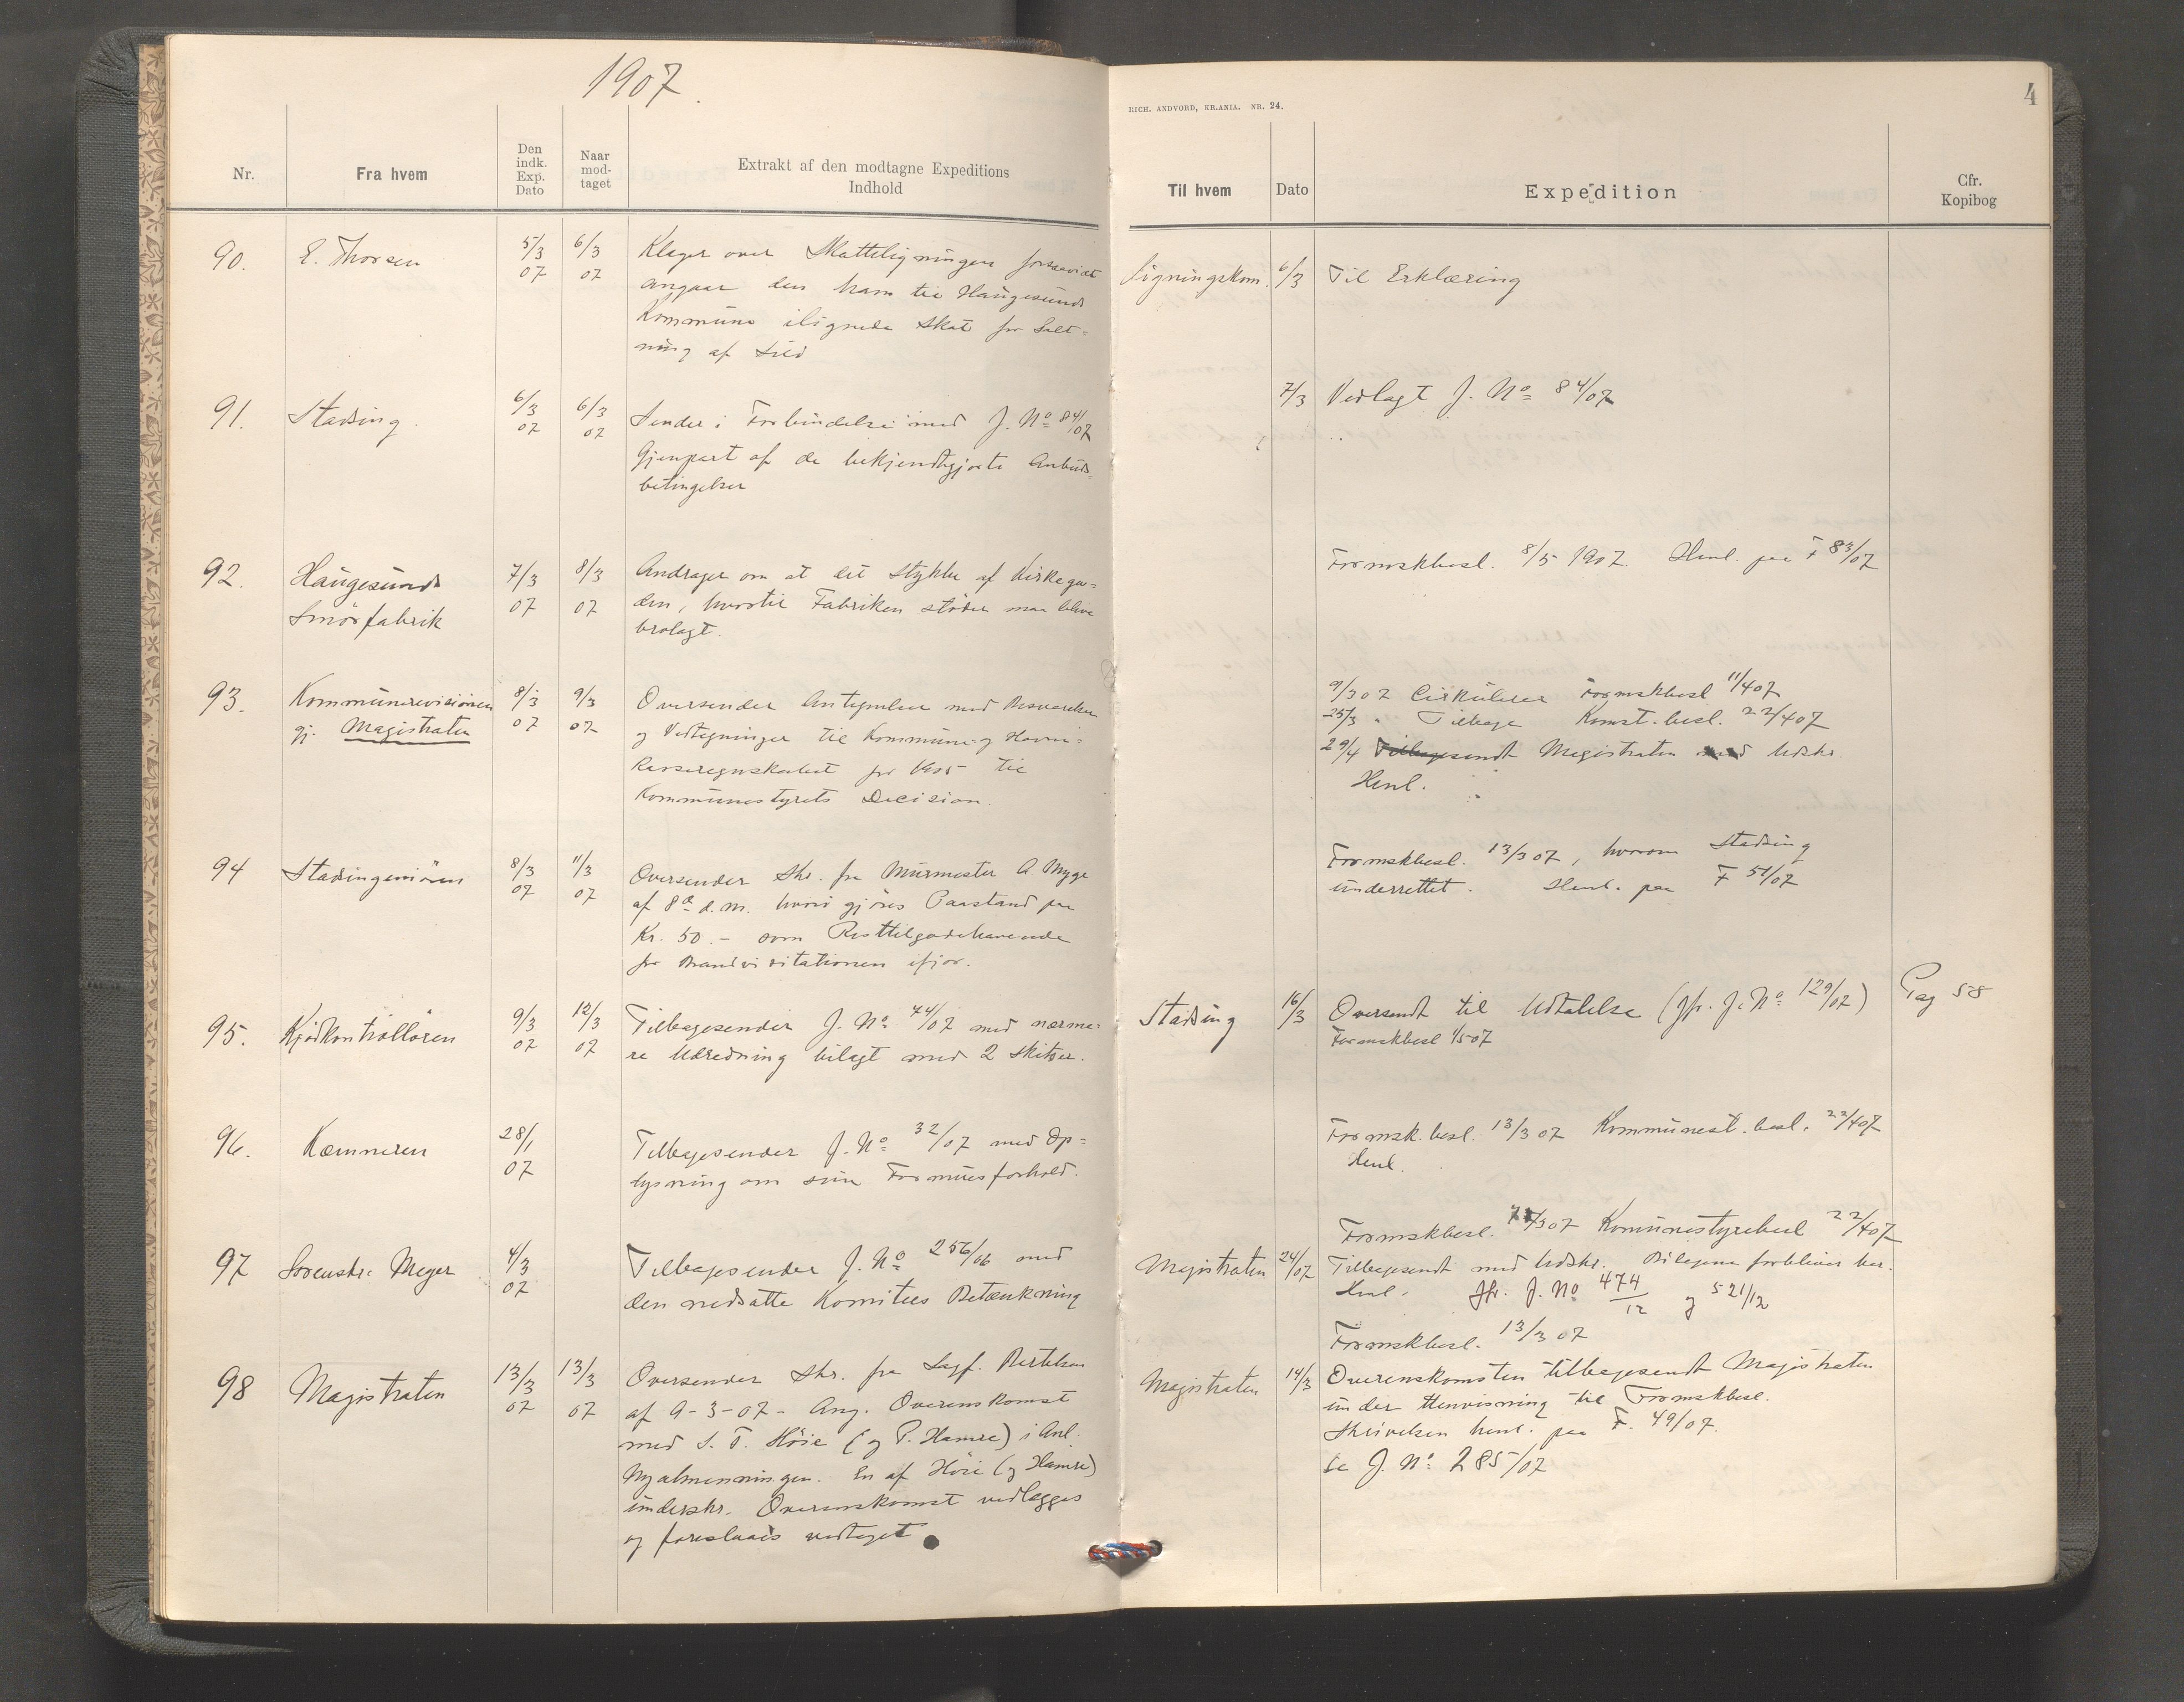 1907.
RICH. ANDVORD, KR.ANIA. NR. 24.
4
Nr.
Fra hvem
Den
indk.
Exp.
Dato
Naar
mod-
taget
Extrakt af den modtagne Expeditions
Indhold
Til hvem
Dato
Expedition
Cfr.
Kopibog
90.
E. Thorsen
5/3
07
6/3
07
Klager over Skatteligningen forsaavidt
angaar den ham til Haugesunds
Kommune ilignede Skat for Salt-
ning af Sild
Ligningskom.
6/3
Til Erklæring
91.
Stadsing.
6/3
07
6/3
07
Sender i Forbindelse med J. No 84/07
Gjenpart af de bekjendtgjorte Anbuds-
betingelser
7/3
Vedlagt J. No 84/07
92.
Haugesunds
Smörfabrik
7/3
07
8/3
07
Andrager om at det Stykke af Kirkega-
den, hvortil Fabriken stöder maa blive
brolagt.
Formskbesl. 8/5 1907. Henl. paa F 83/07
93.
Kommunerevisionen
gj. Magistraten
8/3
07
9/3
07
Oversender Antegnelser med Besvarelser
og Vedtegninger til Kommune- og Havne-
kasseregnskabet for 1905 til
Kommunestyrets Decision.
9/3 07 Cirkulerer Formskbesl 11/4 07
25/3 " Tilbage Komst. besl. 22/4 07
29/4 Tilbagesendt Magistraten med Udskr.
Henl.
94
Stadsingeniören
8/3
07
11/3
07
Oversender Skr. fra Murmester A Myge
af 8de d.m. hvori gjöres Paastand paa
Kr. 50.- som Resttilgodehavende
for Brandvisitationen ifjor.
Formskbesl. 13/3 07, hvorom Stadsing
underrettet. Henl. paa F 51/07
95.
Kjödkontrollören
9/3
07
12/3
07
Tilbagesender J. No 44/07 med nærme-
re Udredning bilagt med 2 Skitser.
Stadsing
16/3
Oversendt til Udtalelse (Jfr. J. No 129/07)
Formskbesl 1/5 07
Pag 58
96.
Kæmneren
28/1
07
Tilbagesender J. No 32/07 med Op-
lysning om sine Formuesforhold.
Formsk. besl. 13/3 07 Kommunest. besl. 22/4 07
Henl.
97
Sorenskr. Meyer
4/3
07
Tilbagesender J. No 256/06 med
den nedsatte Komitees Betænkning
Formskbesl. /3 07 Komunestyrebesl 22/4 07
Magistraten
24/07
Tilbagesendt med Udskr. Bilagene forbliver her.
Henl. Jfr. J. No 474/12 og 521/12
98
Magistraten
13/3
07
13/3
07
Oversender Skr. fra Sagf. Bertelsen
af 9-3-07 - Ang. Overenskomst
med S. T. Höie (og P. Hamre) i Anl.
Nyalmenningen. En af Höie (og Hamre)
underskr. Overenskomst vedlægges
og foreslaaes vedtaget
Formskbesl. 13/3 07
Magistraten
14/3
Overenskomsten tilbagesendt Magistraten
under Henvisning til Formskbesl.
Skrivelsen henl. paa F. 49/07.
Se J. No 285/07